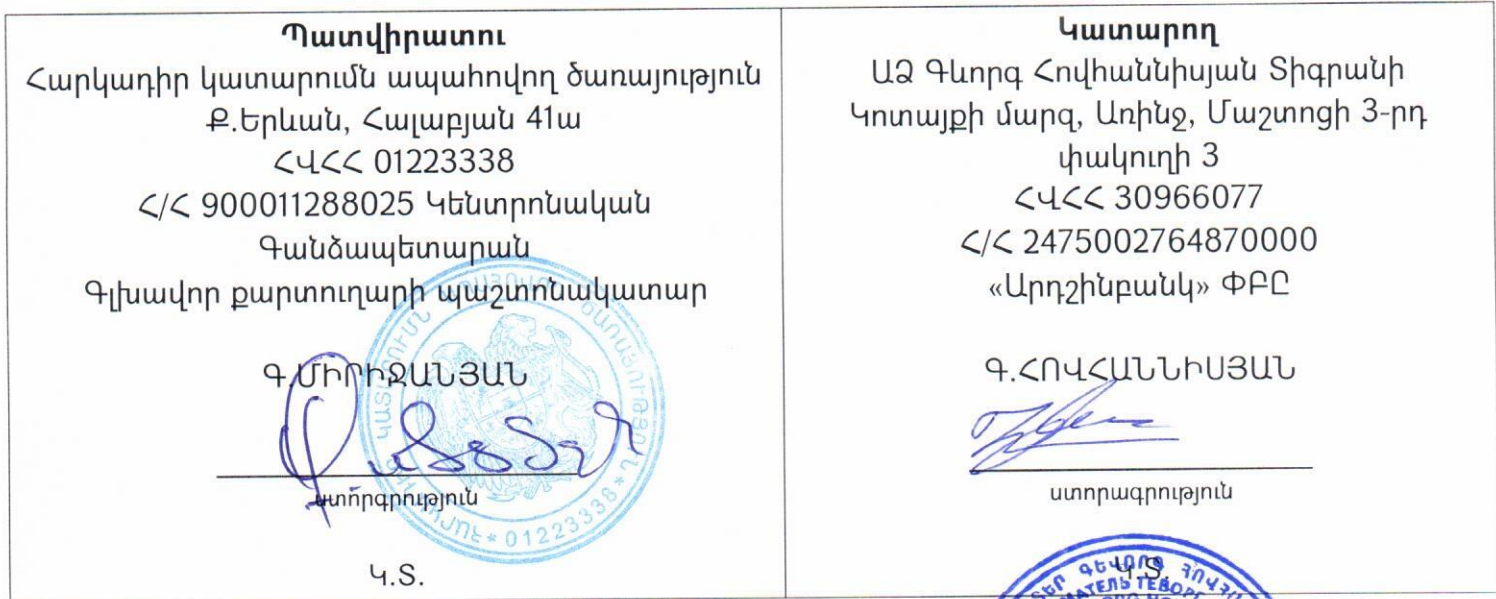 Պատվիրատու
Հարկադիր կատարումն ապահովող ծառայություն
Ք.Երևան, Հալաբյան 41ա
ՀՎՀՀ 01223338
Հ/Հ 900011288025 Կենտրոնական
Գանձապետարան
Գլխավոր քարտուղարի պաշտոնակատար
Գ.ՄԻՐԻՋԱՆՅԱՆ
ստորգրություն
Կ.Տ.
ԿԱՏԱՐՈՒՄՆ ԾԱՌԱՅՈՒԹՅՈՒՆ * 01223338 *
Կատարող
ԱՁ Գևորգ Հովհաննիսյան Տիգրանի
Կոտայքի մարզ, Առինջ, Մաշտոցի 3-րդ
փակուղի 3
ՀՎՀՀ 30966077
Հ/Հ 2475002764870000
«Արդշինբանկ» ՓԲԸ
Գ.ՀՈՎՀԱՆՆԻՍՅԱՆ
ստորագրություն
Կ.Տ.
ԳԵՎՈՐԳ